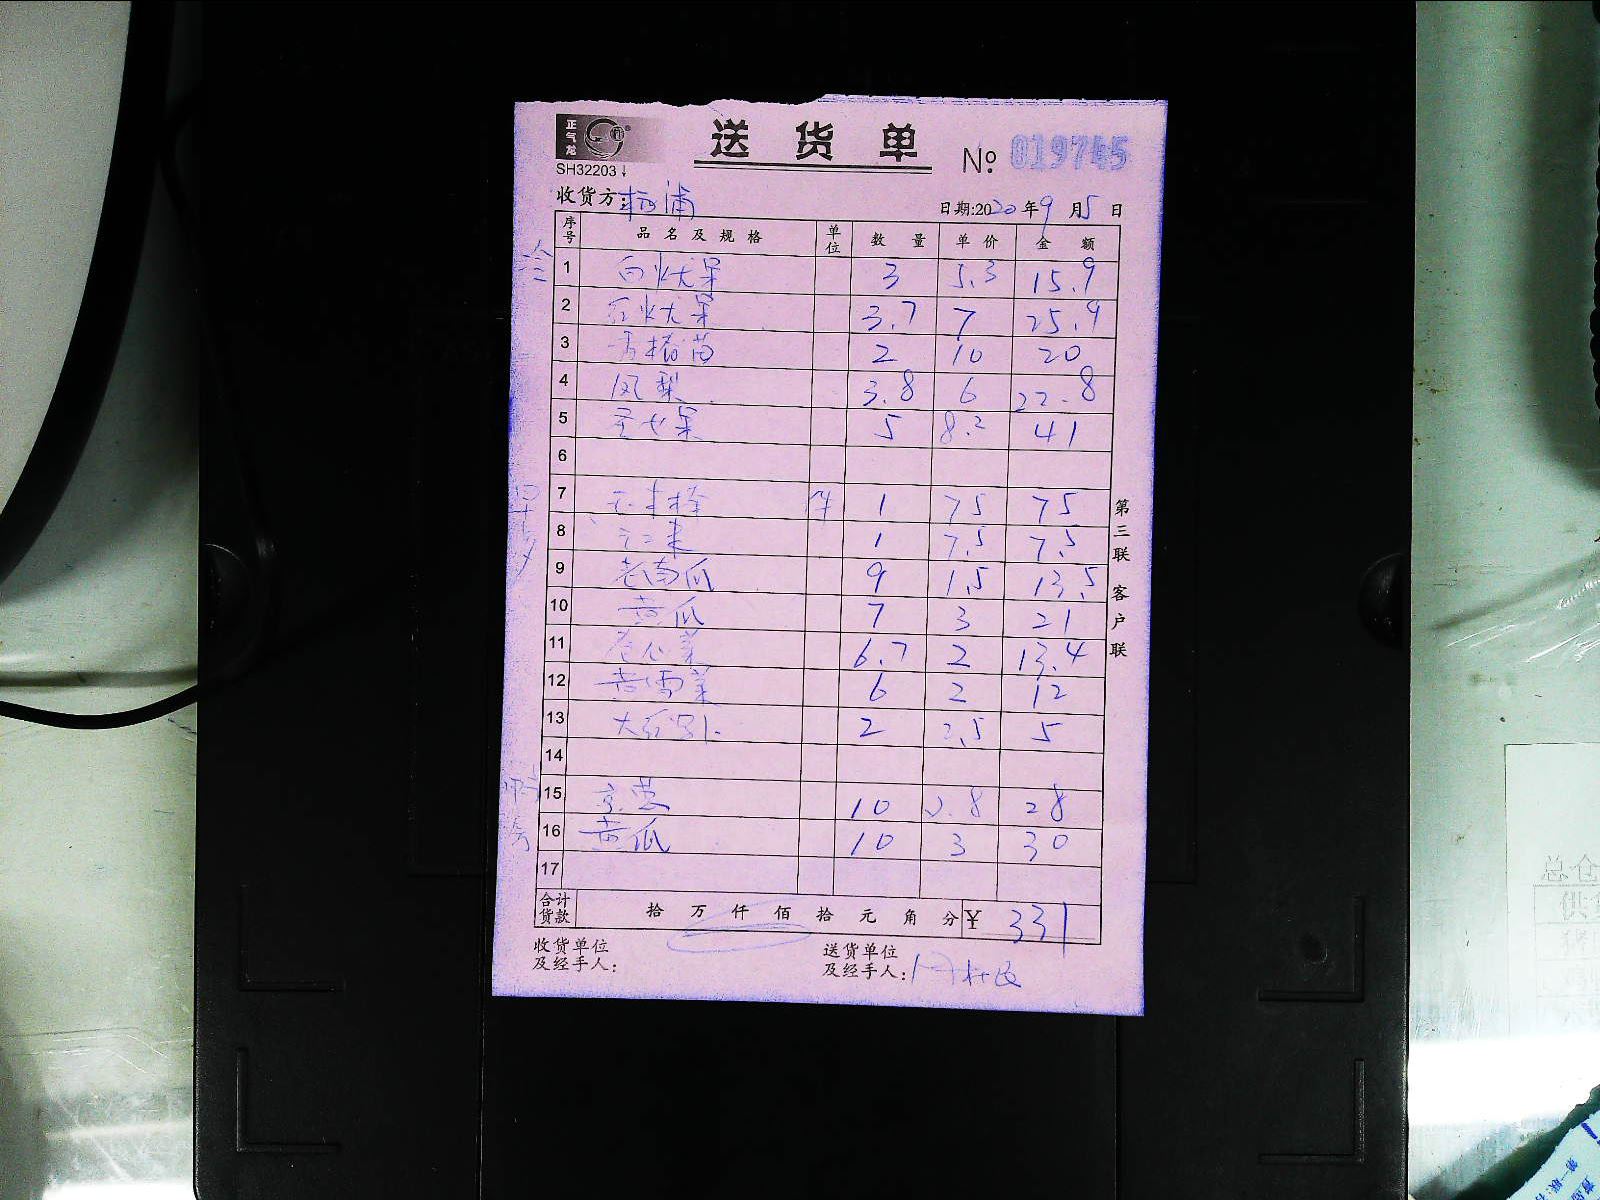 正气龙
送货单
SH32203
№ 019745
收货方: 杨浦
日期:2020年9月5日
序号 品名及规格 单位 数量 单价 金额
1 白火龙果 3 5.3 15.9
2 红火龙果 3.7 7 25.9
3 苗 2 10 20
4 凤梨 3.8 6 22.8
5 圣女果 5 8.2 41
6
7 玉米 件 1 75 75
8 1 7.5 7.5
9 老南瓜 9 1.5 13.5
10 黄瓜 7 3 21
11 卷心菜 6.7 2 13.4
12 菜 6 2 12
13 大 2 2.5 5
14
15 京葱 10 2.8 28
16 黄瓜 10 3 30
17
合计货款 拾 万 仟 佰 拾 元 角 分 ¥ 331
收货单位及经手人:
送货单位及经手人:
第三联 客户联